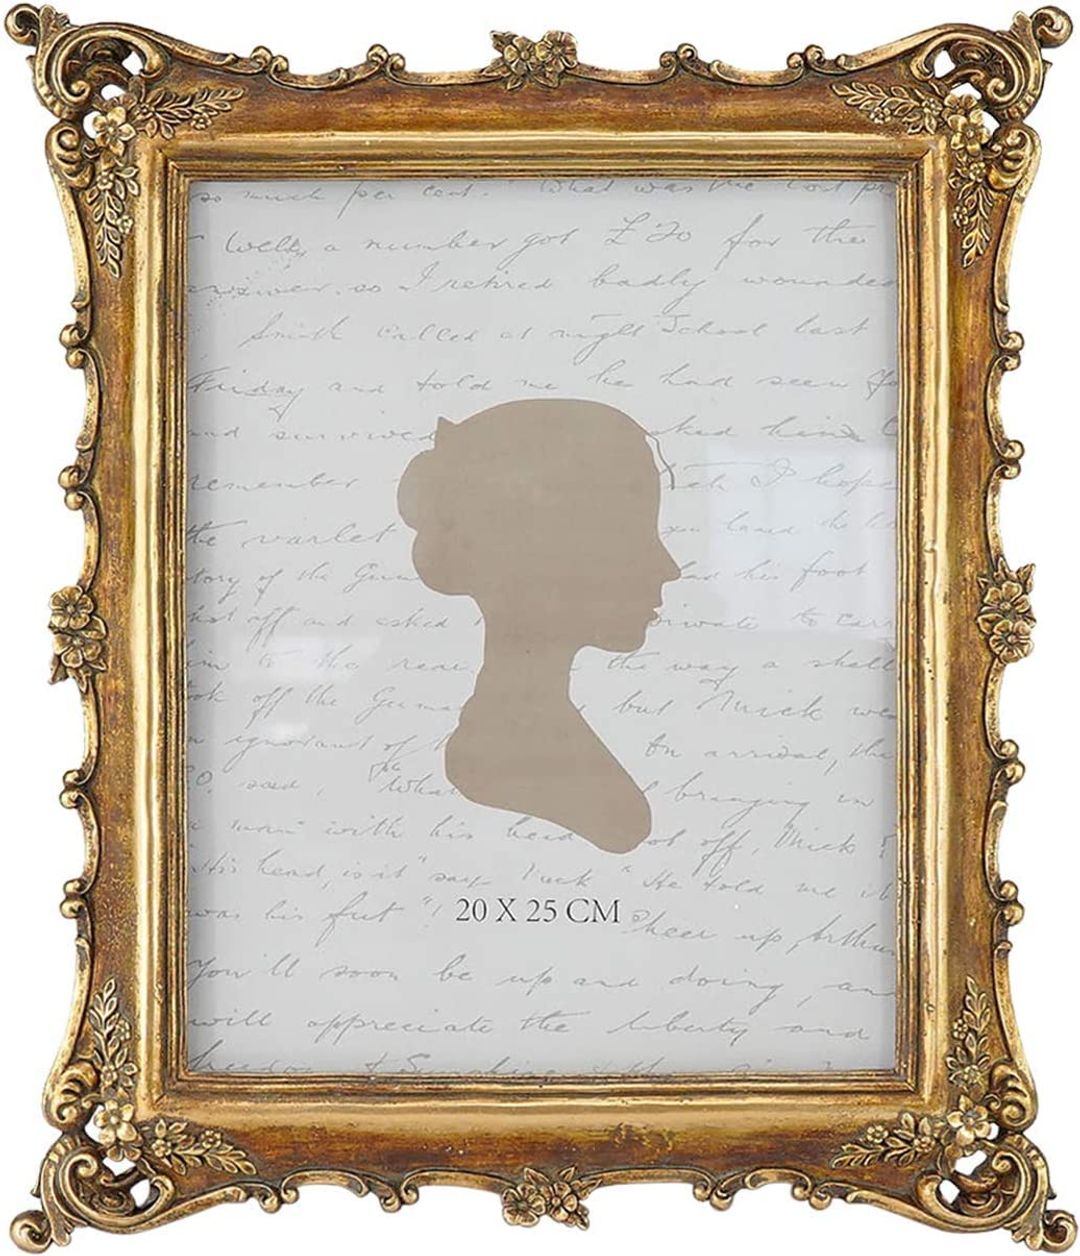 so much per cent. " What was the cost pr
Well, a number got £20 for the
so I retired badly wounded
Smith called at night School last
Friday and told me he had seen
and survived ked him
remember I hope
the varlet you hand
tory of the Gun had his foot
shot off and asked to carr
him to the rear, the way a shell
ok off the but Mick was
ignorant of On arrival, the
said, the
What bringing in
man with his head ot off, Mick
His head, is it" says Mick "He told me it
was his fut "! 20 X 25 CM Cheer up, Arthur
You'll soon be up and doing, an
will appreciate the liberty and
freedom & Sunshine